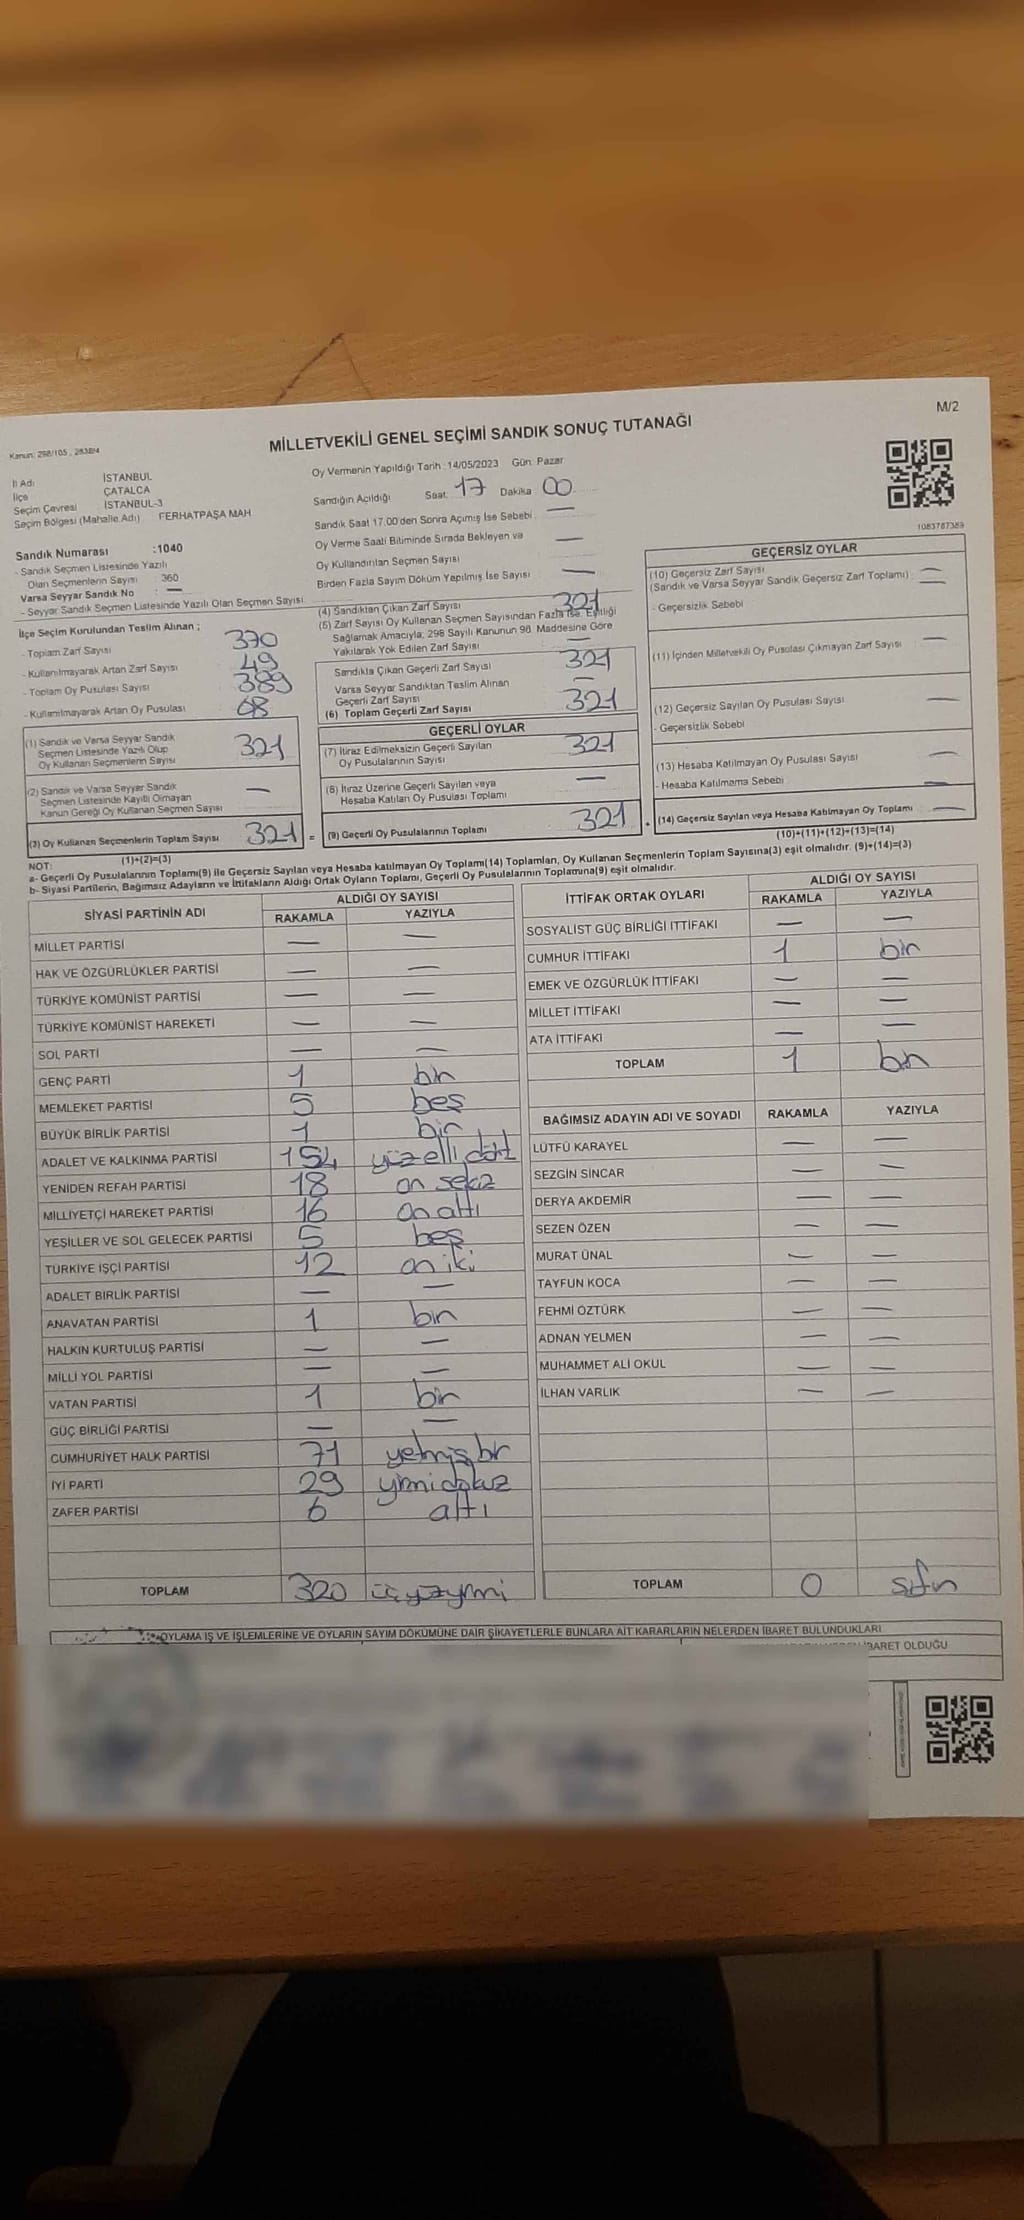 M/2
MİLLETVEKİLİ GENEL SEÇİMİ SANDIK SONUÇ TUTANAĞI
Kanun: 298/105 , 2839/4
İl Adı İSTANBUL
İlçe ÇATALCA
Seçim Çevresi : İSTANBUL-3
Seçim Bölgesi (Mahalle Adı) FERHATPAŞA MAH
Sandık Numarası :1040
- Sandık Seçmen Listesinde Yazılı
Olan Seçmenlerin Sayısı : 360
Varsa Seyyar Sandık No : —
- Seyyar Sandık Seçmen Listesinde Yazılı Olan Seçmen Sayısı:
Oy Vermenin Yapıldığı Tarih : 14/05/2023 Gün: Pazar
Sandığın Açıldığı Saat: 17 Dakika 00
Sandık Saat 17.00'den Sonra Açımış İse Sebebi : —
Oy Verme Saati Bitiminde Sırada Bekleyen ve —
Oy Kullandırılan Seçmen Sayısı
Birden Fazla Sayım Döküm Yapılmış İse Sayısı : —
1083787389
İlçe Seçim Kurulundan Teslim Alınan ;
- Toplam Zarf Sayısı 370
- Kullanılmayarak Artan Zarf Sayısı 49
- Toplam Oy Pusulası Sayısı 389
- Kullanılmayarak Artan Oy Pusulası 68
(1) Sandık ve Varsa Seyyar Sandık
Seçmen Listesinde Yazılı Olup
Oy Kullanan Seçmenlerin Sayısı 321
(2) Sandık ve Varsa Seyyar Sandık
Seçmen Listesinde Kayıtlı Olmayan
Kanun Gereği Oy Kullanan Seçmen Sayısı —
(3) Oy Kullanan Seçmenlerin Toplam Sayısı 321 =
(1)+(2)=(3)
(4) Sandıktan Çıkan Zarf Sayısı 321
(5) Zarf Sayısı Oy Kullanan Seçmen Sayısından Fazla İse, Eşitliği
Sağlamak Amacıyla, 298 Sayılı Kanunun 98. Maddesine Göre
Yakılarak Yok Edilen Zarf Sayısı —
Sandıkta Çıkan Geçerli Zarf Sayısı 321
Varsa Seyyar Sandıktan Teslim Alınan
Geçerli Zarf Sayısı —
(6) Toplam Geçerli Zarf Sayısı 321
GEÇERLİ OYLAR
(7) İtiraz Edilmeksizin Geçerli Sayılan
Oy Pusulalarının Sayısı 321
(8) İtiraz Üzerine Geçerli Sayılan veya
Hesaba Katılan Oy Pusulası Toplamı —
(9) Geçerli Oy Pusulalarının Toplamı 321 +
GEÇERSİZ OYLAR
(10) Geçersiz Zarf Sayısı —
(Sandık ve Varsa Seyyar Sandık Geçersiz Zarf Toplamı) : —
- Geçersizlik Sebebi
(11) İçinden Milletvekili Oy Pusulası Çıkmayan Zarf Sayısı —
(12) Geçersiz Sayılan Oy Pusulası Sayısı —
- Geçersizlik Sebebi
(13) Hesaba Katılmayan Oy Pusulası Sayısı —
- Hesaba Katılmama Sebebi —
(14) Geçersiz Sayılan veya Hesaba Katılmayan Oy Toplamı —
(10)+(11)+(12)+(13)=(14)
NOT:
a- Geçerli Oy Pusulalarının Toplamı(9) ile Geçersiz Sayılan veya Hesaba katılmayan Oy Toplamı(14) Toplamları, Oy Kullanan Seçmenlerin Toplam Sayısına(3) eşit olmalıdır. (9)+(14)=(3)
b- Siyasi Partilerin, Bağımsız Adayların ve İttifakların Aldığı Ortak Oyların Toplamı, Geçerli Oy Pusulalarının Toplamına(9) eşit olmalıdır.
SİYASİ PARTİNİN ADI ALDIĞI OY SAYISI
RAKAMLA YAZIYLA
MİLLET PARTİSİ — —
HAK VE ÖZGÜRLÜKLER PARTİSİ — —
TÜRKİYE KOMÜNİST PARTİSİ — —
TÜRKİYE KOMÜNİST HAREKETİ — —
SOL PARTİ — —
GENÇ PARTİ 1 bir
MEMLEKET PARTİSİ 5 beş
BÜYÜK BİRLİK PARTİSİ 1 bir
ADALET VE KALKINMA PARTİSİ 154 yüzelli dört
YENİDEN REFAH PARTİSİ 18 on sekiz
MİLLİYETÇİ HAREKET PARTİSİ 16 on altı
YEŞİLLER VE SOL GELECEK PARTİSİ 5 beş
TÜRKİYE İŞÇİ PARTİSİ 12 on iki
ADALET BİRLİK PARTİSİ — —
ANAVATAN PARTİSİ 1 bir
HALKIN KURTULUŞ PARTİSİ — —
MİLLİ YOL PARTİSİ — —
VATAN PARTİSİ 1 bir
GÜÇ BİRLİĞİ PARTİSİ — —
CUMHURİYET HALK PARTİSİ 71 yetmiş bir
İYİ PARTİ 29 yirmi dokuz
ZAFER PARTİSİ 6 altı
TOPLAM 320 üçyüzyirmi
İTTİFAK ORTAK OYLARI ALDIĞI OY SAYISI
RAKAMLA YAZIYLA
SOSYALİST GÜÇ BİRLİĞİ İTTİFAKI — —
CUMHUR İTTİFAKI 1 bir
EMEK VE ÖZGÜRLÜK İTTİFAKI — —
MİLLET İTTİFAKI — —
ATA İTTİFAKI — —
TOPLAM 1 bir
BAĞIMSIZ ADAYIN ADI VE SOYADI RAKAMLA YAZIYLA
LÜTFÜ KARAYEL — —
SEZGİN SİNCAR — —
DERYA AKDEMİR — —
SEZEN ÖZEN — —
MURAT ÜNAL — —
TAYFUN KOCA — —
FEHMİ ÖZTÜRK — —
ADNAN YELMEN — —
MUHAMMET ALİ OKUL — —
İLHAN VARLIK — —
TOPLAM 0 sıfır
OYLAMA İŞ VE İŞLEMLERİNE VE OYLARIN SAYIM DÖKÜMÜNE DAİR ŞİKAYETLERLE BUNLARA AİT KARARLARIN NELERDEN İBARET BULUNDUKLARI
İBARET OLDUĞU